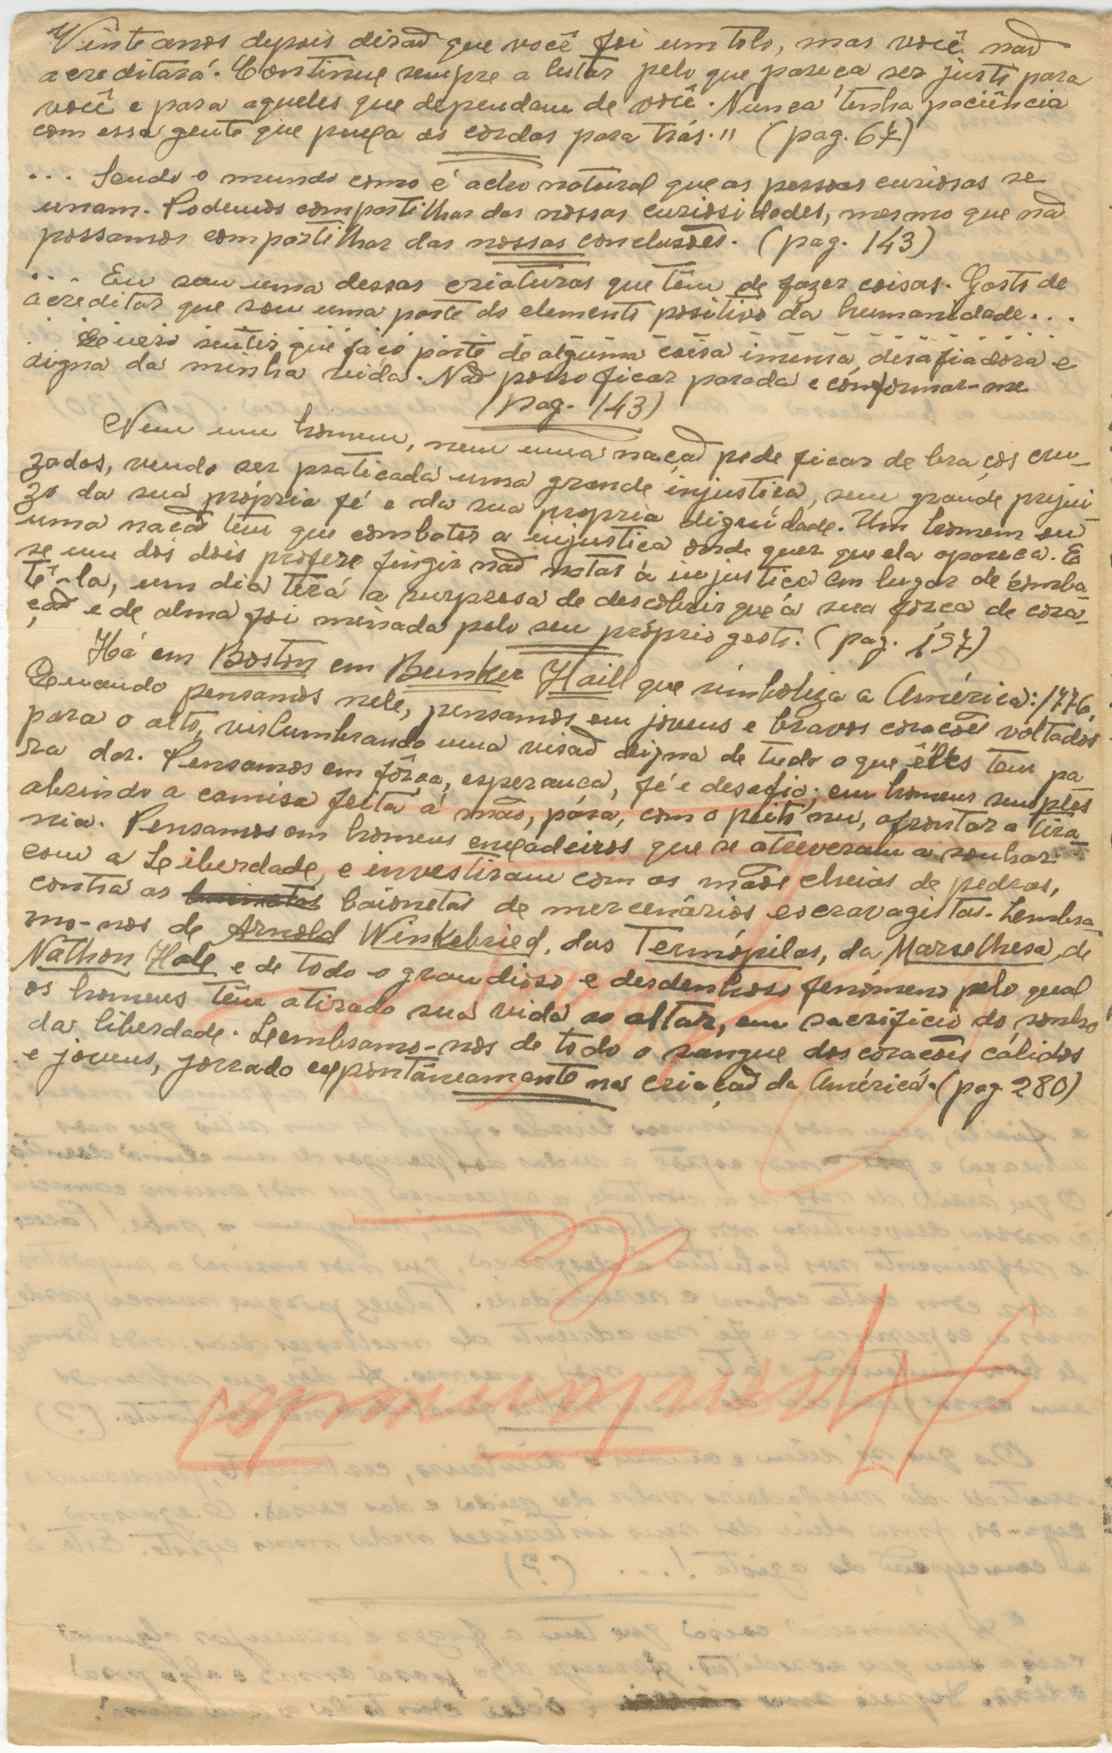 Vinte anos depois dirão que você foi um tolo, mas você não
acreditará. Continue sempre a lutar pelo que pareça ser justo para
você e para aqueles que dependam de você. Nunca tenha paciência
com essa gente que puxa as cordas para trás." (pag. 67)
... Sendo o mundo como é acho natural que as pessoas curiosas se
unam. Podemos compartilhar das nossas curiosidades, mesmo que não
possamos compartilhar das nossas conclusões. (pag. 143)
... Eu sou uma dessas criaturas que têm de fazer coisas. Gosto de
acreditar que sou uma parte do elemento positivo da humanidade...
Quero sentir que faço parte de alguma coisa imensa, desafiadora e
digna da minha vida. Não posso ficar parada e conformar-me
(pag. 143)
Nem um homem, nem uma nação pode ficar de braços cru-
zados, vendo ser praticada uma grande injustiça, sem grande prejui
zo da sua própria fé e da sua propria dignidade. Um homem ou
uma nação tem que combater a injustiça onde quer que ela apareca. E
se um dos dois prefere fingir não notar a injustiça em lugar de comba-
tê-la, um dia terá a surpresa de descobrir que a sua força de cora-
ção e de alma foi minada pelo seu próprio gesto. (pag. 197)
Há em Boston em Bunker Haill que simboliza a América: 1776,
Quando pensamos nele, pensamos em jovens e bravos corações voltados
para o alto, vislumbrando uma visão digna de tudo o que êles tem pa
ra dar. Pensamos em fôrça, esperança, fé e desafio; em homens simples
abrindo a camisa feita á mão, pára, com o peito nu, afrontar a tira
nia. Pensamos em homens enxadeiros que se atreveram a sonhar
com a Leiberdade, e investiram com as mãos cheias de pedras,
contra as baionetas de mercenários escravagistas. Lembra
mo-nos de Arnold Winkebried, das Termópilas, da Marselhesa, de
Nathon Hale e de todo o grandioso e desdenhoso fenómeno pelo qual
os homens têm atirado sua vida ao altar, em sacrificio do sonho
da liberdade. Leembramo-nos de todo o sangue dos corações cálidos
e jovens, jorrado expontâneamente na criação da América. (pag 280)